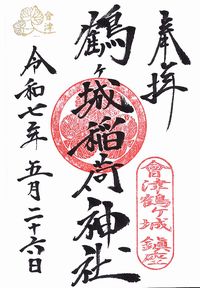 奉拝
鶴ヶ城稲荷神社
令和七年五月二十六日
會津
會津鶴ヶ城鎮座